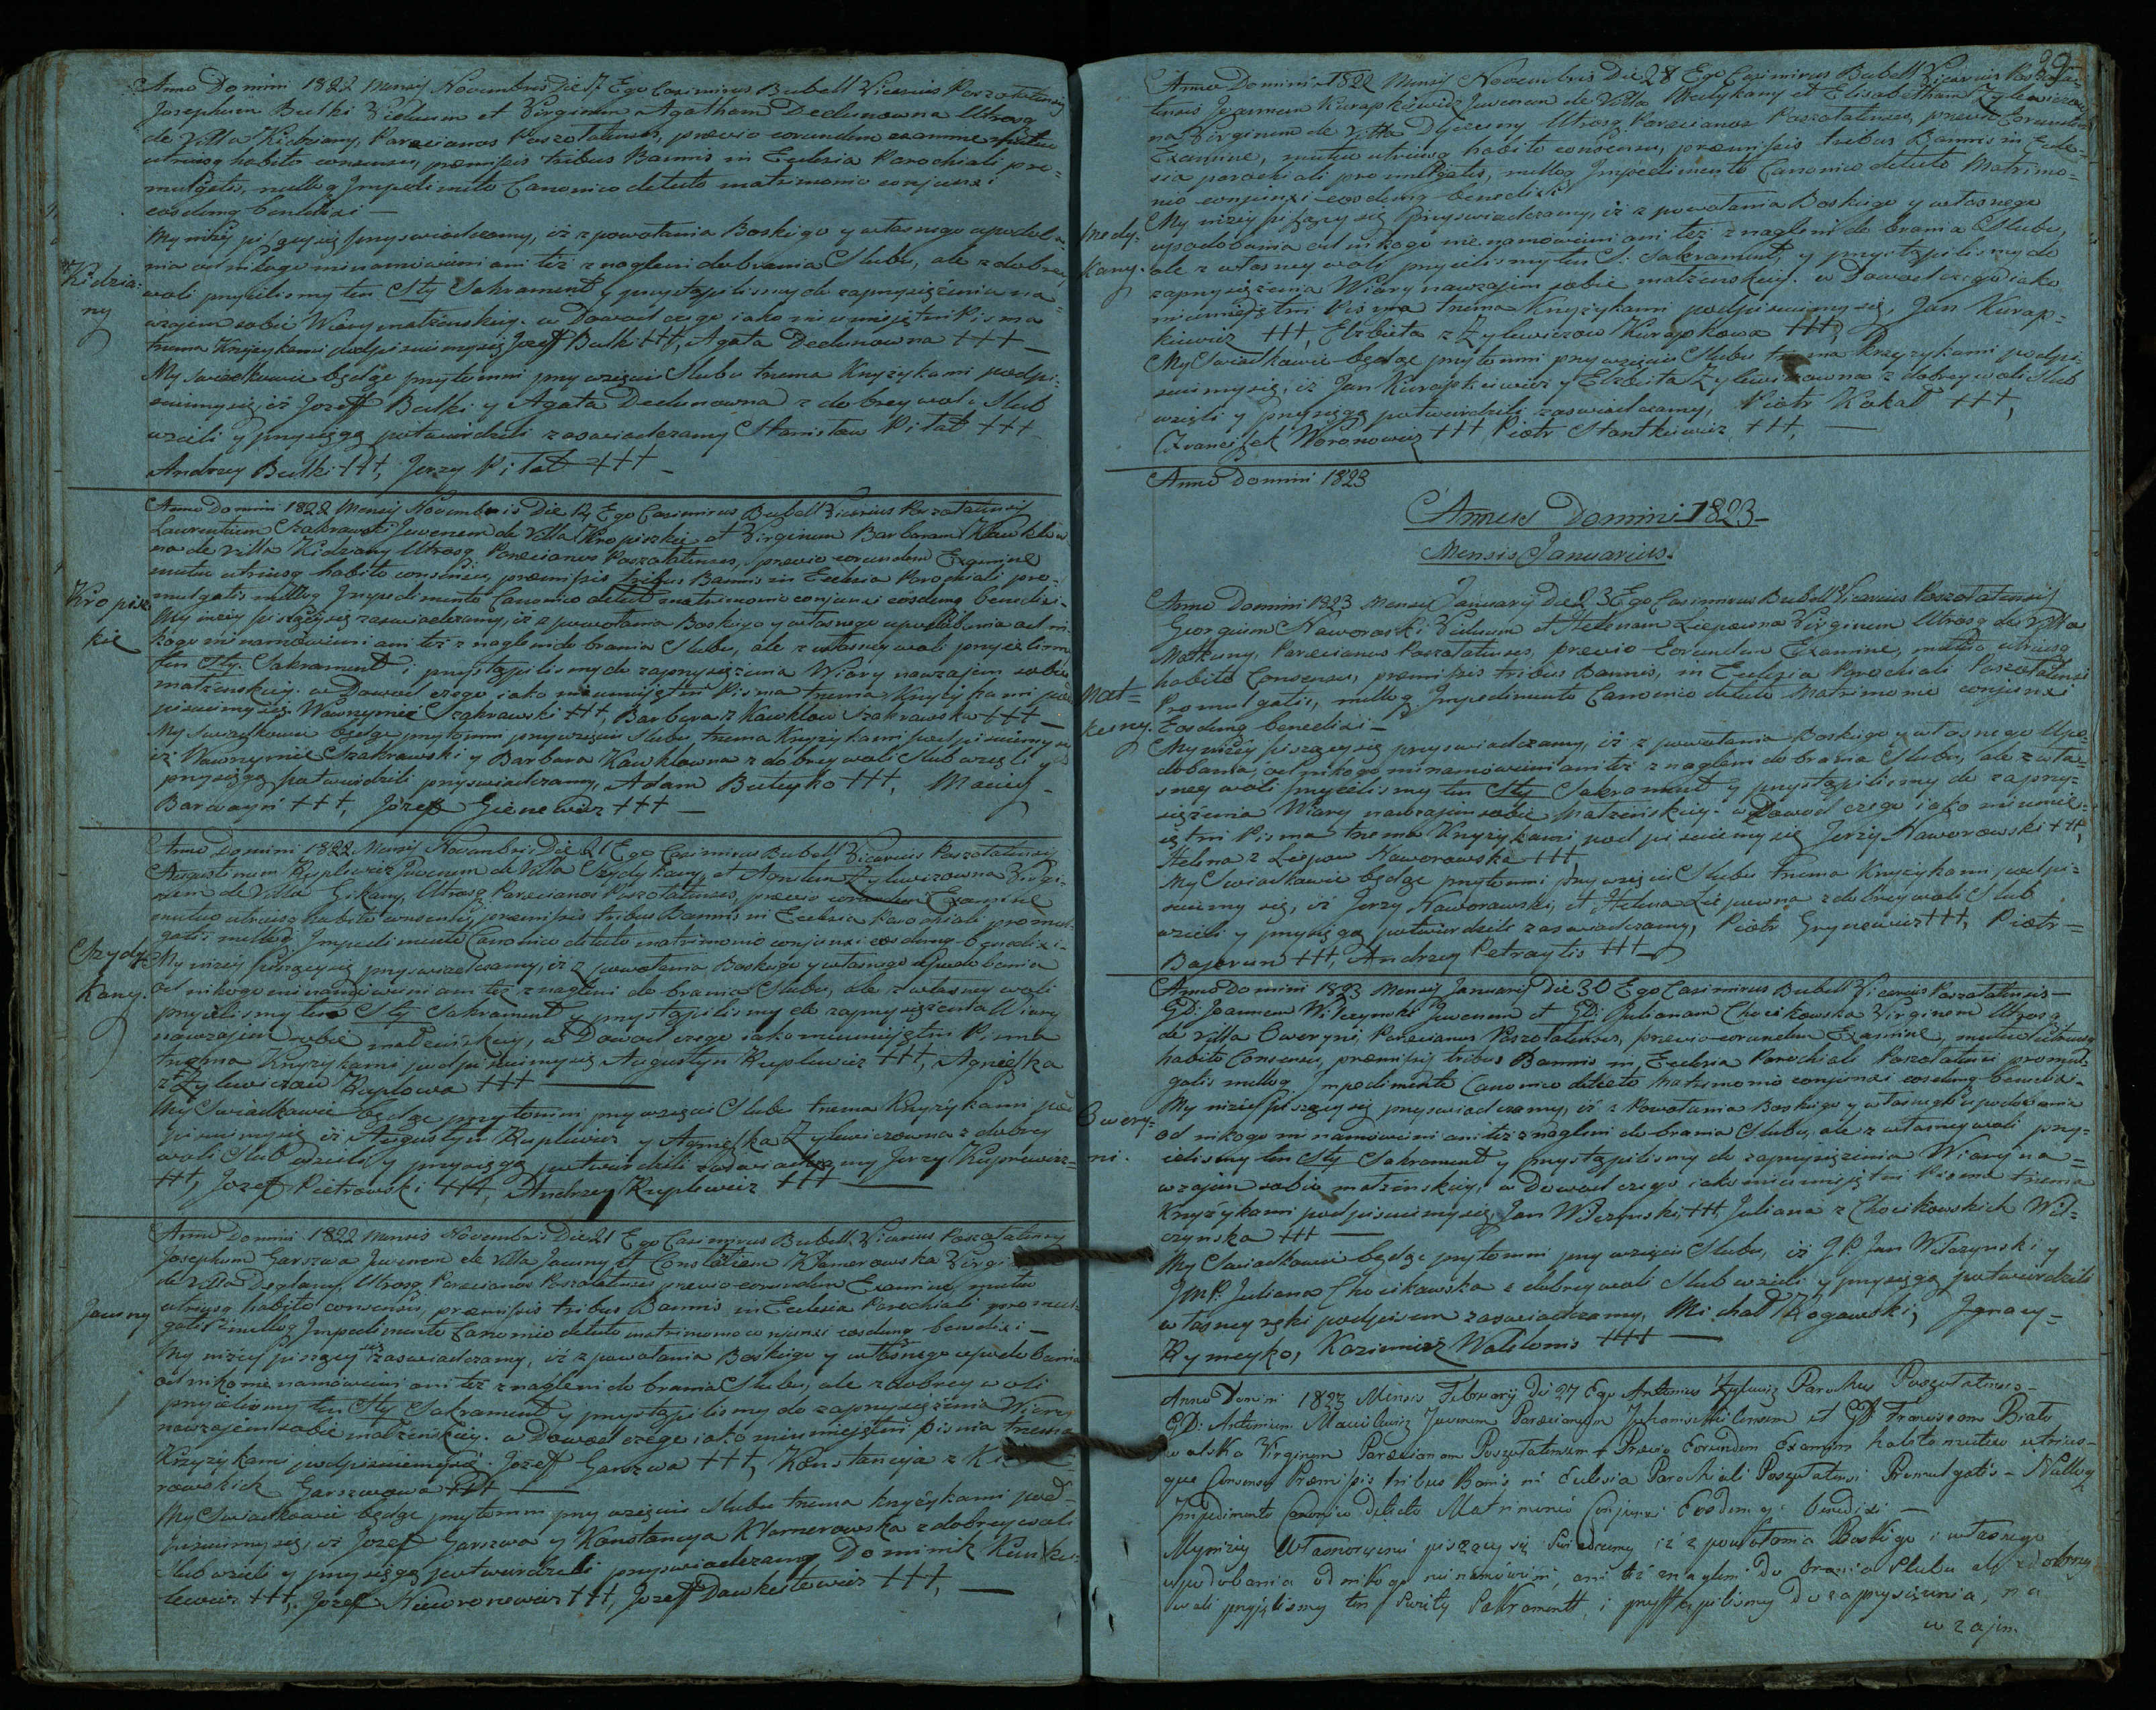 Anno Domini 1822 Mensis Novembris Die 7 Ego Casimirus Bubell Vicarius Poszołatensis
Josephum Bulki Viduum et Virginem Agatham Dedunowna Utrosq
de Villa Kidziany, Paræcianos Poszołatenses, prævio eorundem examine mutuo
utriusq habito consensu, præmissis tribus Bannis in Ecclesia Parochiali pro=
mulgatis, nulloq Impedimento Canonico detecto matrimonio conjunxi
eosdemq benedixi —
Kidzia=
ny
My niżey piszący się przyswiadczamy, iż z powołania Boskiego y własnego upodoba=
nia od nikogo nienamówieni ani też z nagleni do brania Slubu, ale z dobrey
woli przyielismy ten Sty Sakrament y przystąpilismy do zaprzysiężenia na=
wzajem sobie Wiary małżenskiey. w Dowod czego iako nieumiejętni Pisma
trzema Krzyżykami podpisuiemy się Jozeff Bulki +++, Agata Dedunowna +++ —
My swiadkowie będąc przytomni przy wzięciu Slubu trzema Krzyżykami podpi=
suiemy się, iż Jozeff Bulki y Agata Dedunowna z dobrey woli Slub
wzieli y przysięgą potwierdzili zaswiadczamy Stanisław Pitał +++
Andrzey Bulki +++, Jerzy Pitał +++ —
Anno Domini 1822 Mensis Novembris Die 12 Ego Casimirus Bubell Vicarius Poszołatensis
Laurentium Szakrawski Juvenem de Villa Kropiszkie et Virginem Barbaram Kawklow=
na de Villa Kidziany Utrosq Paræcianos Poszołatenses, prævio eorundem Examine
mutuo utriusq habito consensu, præmissis tribus Bannis in Ecclesia Parochiali pro=
mulgatis nulloq Impedimento Canonico detecto matrimonio conjunxi eosdemq benedixi —
Kropisz=
kie
My niżey piszący się zaswiadczamy, iż z powołania Boskiego y własnego upodobania od ni=
kogo nie namówieni ani też z nagleni do brania Slubu, ale z własney woli przyielismy
ten Sty. Sakrament i przystąpilismy do zaprzysiężenia Wiary nawzajem sobie
małżenskiey. w Dowod czego iako nieumiejętni Pisma trzema Krzyżykami pod
pisuiemy się. Wawrzyniec Szakrawski +++, Barbara z Kawklow Szakrawska +++ —
My Swiadkowie będąc przytomni przy wzięciu Slubu, trzema Krzyżykami podpisuiemy się
iż Wawrzyniec Szakrawski y Barbara Kawklowna z dobrey woli Slub wzieli y
przysięgą potwierdzili przyswiadczamy, Adam Buteyko +++, Maciey
Barwayń +++, Józeff Gienewicz +++ —
Anno Domini 1822 Mensis Novembris Die 21 Ego Casimirus Bubell Vicarius Poszołatensis
Augustinum Ruplewicz Juvenem de Villa Szydykany, et Agnetem Zylewiczowna Virgi=
nem de Villa Gikany, Utrosq Paræcianos Poszołatenses, prævio eorundem Examine
mutuo utriusq habito consensu, præmissis tribus Bannis in Ecclesia Parochiali promul=
gatis nulloq Impedimento Canonico detecto matrimonio conjunxi eosdemq benedixi —
Szydy=
kany.
My niżey piszący się przyswiadczamy, iż z powołania Boskiego y własnego upodobania
od nikogo nie namówieni ani też z nagleni do brania Slubu, ale z własney woli
przyielismy ten Sty Sakrament y przystąpilismy do zaprzysiężenia Wiary
nawzajem sobie małżeńskiey, w Dowod czego iako nieumiejętni Pisma
trzema Krzyżykami podpisuiemy się Augustyn Ruplewicz +++, Agnieszka
z Zylewiczow Ruplowa +++ —
My Swiadkowie będąc przytomni przy wzięciu Slubu trzema Krzyżykami pod
pisuiemy się iż Augustyn Ruplewicz y Agnieszka Zylewiczowna z dobrey
woli Slub wzieli y przysięgą potwierdzili zaswiadczamy Jerzy Kuprewicz=
+++, Jozeff Pietrowski +++, Andrzey Ruplewicz +++ —
Anno Domini 1822 Mensis Novembri Die 21 Ego Casimirus Bubell Vicarius Poszołatensis
Josephum Garszwa Juvenem de Villa Jawny et Constatiam Klamerowska Virginem
de Villa Deglany, Utrosq Paræcianos Poszołatenses prævio eorundem Examine, mutuo
utriusq habito consensu, præmissis tribus Bannis in Ecclesia Parochiali promul=
gatis nulloq Impedimento Canonico detecto matrimonio conjunxi eosdemq benedixi —
Jawny
My niżey piszący się zaswiadczamy, iż z powołania Boskiego y własnego upodobania
od niko nie namówieni ani też z nagleni do brania Slubu, ale z dobrey woli
przyielismy ten Sty Sakrament y przystąpilismy do zaprzysiężenia Wiary
nawzajem sobie małżenskiey. w Dowod czego iako nieumiejętni pisma trzema
Krzyżykami podpisuiemy się. Jozeff Garszwa +++, Konstancyja z
rowskich Garszwowa +++ —
My Swiadkowie będąc przytomni przy wzięciu Slubu trzema krzyżykami pod=
pisuiemy się, iż Jozeff Garszwa y Konstancyja Klamerowska z dobrey woli
slub wzieli y przysięgą potwierdzili przyswiadczamy Dominik Kunke=
lewicz +++, Jozeff Nieworonewicz +++, Jozeff Dawkeitewicz +++, —
99
Anno Domini 1822 Mensis Novembris Die 28 Ego Casimirus Bubell Vicarius Poszoła=
tensis Joannem Kurapkiewicz Juvenem de Villa Medykany et Elisabetham Zylewiczow
na Virginem de Villa Dyleciny Utrosq Paræcianos Poszołatenses, prævio Eorundem
Examine, mutuo utriusq habito consensu, præmissis tribus Bannis in Eccle=
sia parochiali promulgatis, nulloq Impedimento Canonico detecto Matrimo=
nio conjunxi eosdemq benedixi —
Medy=
kany.
My niżey piszący się przyswiadczamy, iż z powołania Boskiego y własnego
upodobania od nikogo nie namówieni ani też z nagleni do brania Slubu,
ale z własney woli przyielismy ten S: Sakrament, y przystąpilismy do
zaprzysiężenia Wiary nawzajem sobie małżenskiey. w Dowod czego iako
nieumiejętni Pisma trzema Krzyżykami podpisuiemy się, Jan Kurap=
kiewicz +++, Elżbieta z Zylewiczow Kurapkowa +++,
My Swiadkowie będąc przytomni przy wzięciu Slubu trzema Krzyżykami podpi
suiemy się, iż Jan Kurapkiewicz y Elżbieta Zylewiczowna z dobrey woli Slub
wzieli y przysięgą potwierdzili zaswiadczamy, Piotr Kakał +++,
Franciszek Woronowicz +++ Piotr Stantkiewicz +++, —
Anno Domini 1823
Annus Domini 1823—
Mensis Januarius.
Anno Domini 1823 Mensis January Die 23 Ego Casimirus Bubell Vicarius Poszołatensis
Georgium Naworoski Viduum et Helenam Liepowna Virginem Utrosq de Villa
Matkuny, Paræcianos Poszołatenses, prævio Eorundem Examine, mutuo utriusq
habito Consensu, præmissis tribus Bannis, in Ecclesia Parochiali Poszołatensi
Promulgatis, nulloq Impedimento Canonico detecto Matrimonio conjunxi
Eosdemq benedixi —
Mat=
kuny.
My niżey piszący się przyswiadczamy, iż z powołania Boskiego y własnego Upo=
dobania, od nikogo nie namówieni ani też z nagleni do brania Slubu, ale z wła=
sney woli przyielismy ten Sty Sakrament y przystąpilismy do zaprzy=
siężenia Wiary nawzajem sobie Małżeńskiey. w Dowod czego iako nieumie=
iętni Pisma trzema Krzyżykami podpisuiemy się Jerzy Naworowski +++,
Helena z Liepow Naworowska +++,
My Swiadkowie będąc przytomni przy wzięciu Slubu trzema Krzyżykami podpi=
suiemy się, iż Jerzy Naworawski, et Helena Liepowna z dobrey woli Slub
wzieli y przysięgą potwierdzili zaswiadczamy, Piotr Grynewicz +++, Piotr=
Bajorun +++, Andrzey Petraytis +++ —
Anno Domini 1823 Mensis January Die 30 Ego Casimirus Bubell Vicarius Poszołatensis —
GD: Joannem Wilczynski Juvenem et GD: Julianam Chocikowska Virginem Utrosq
de Villa Oweryni, Paræcianos Poszołatenses, prævio eorundem Examine, mutuo utriusq
habito Consensu, præmissis tribus Bannis in Ecclesia Parochiali Poszołatensi promul=
gatis nulloq Impedimento Canonico detecto Matrimonio conjunxi eosdemq benedixi —
Owery=
ni.
My niżey piszący się przyswiadczamy, iż z Powołania Boskiego y własnego upodobania
od nikogo nie namówieni ani też z nagleni do brania Slubu, ale z własney woli przy=
ielismy ten Sty Sakrament y przystąpilismy do zaprzysiężenia Wiary na=
wzajem sobie małżenskiey, w Dowod czego iako nieumiejętni Pisma trzema
Krzyżykami podpisuiemy się, Jan Wilczynski +++ Juliana z Chocikowskich Wil=
czynska +++ —
My Swiadkowie będąc przytomni przy wzięciu Slubu, iż J.P. Jan Wilczynski y
JmP. Juliana Chocikawska z dobrey woli Slub wzieli y przysięgą potwierdzili
własney ręki podpisem zaswiadczamy, Michał Rogowski, Ignacy=
Rymeyko, Kazimierz Walelonis +++ —
Anno Domini 1823 Mensis February Die 27 Ego Antonius Zylewicz Parochus Poszołatensis —
GD: Antonium Maculewicz Juvenem Paræcianum et GD Franciscam Biało
walska Virginem Paræcianam Poszołatensem + Prævio Eorundem Examine habito mutuo utrius=
que Consensu Præmissis tribus Bannis in Ecclesia Parochiali Poszołatensi Promulgatis — Nulloq
Impedimento Canonico detecto Matrimonio Conjunxi Eosdemq: benedixi —
My niżey Własnoręcznie piszący się Swiadczemy iż z powołania Boskiego i własnego
upodobania od nikogo nie namówieni, ani też z nagleni Do brania Slubu ale z dobrey
woli przyjęlismy ten Swięty Sakrament, i przystąpilismy Do zaprzysiężenia, na
wzajem